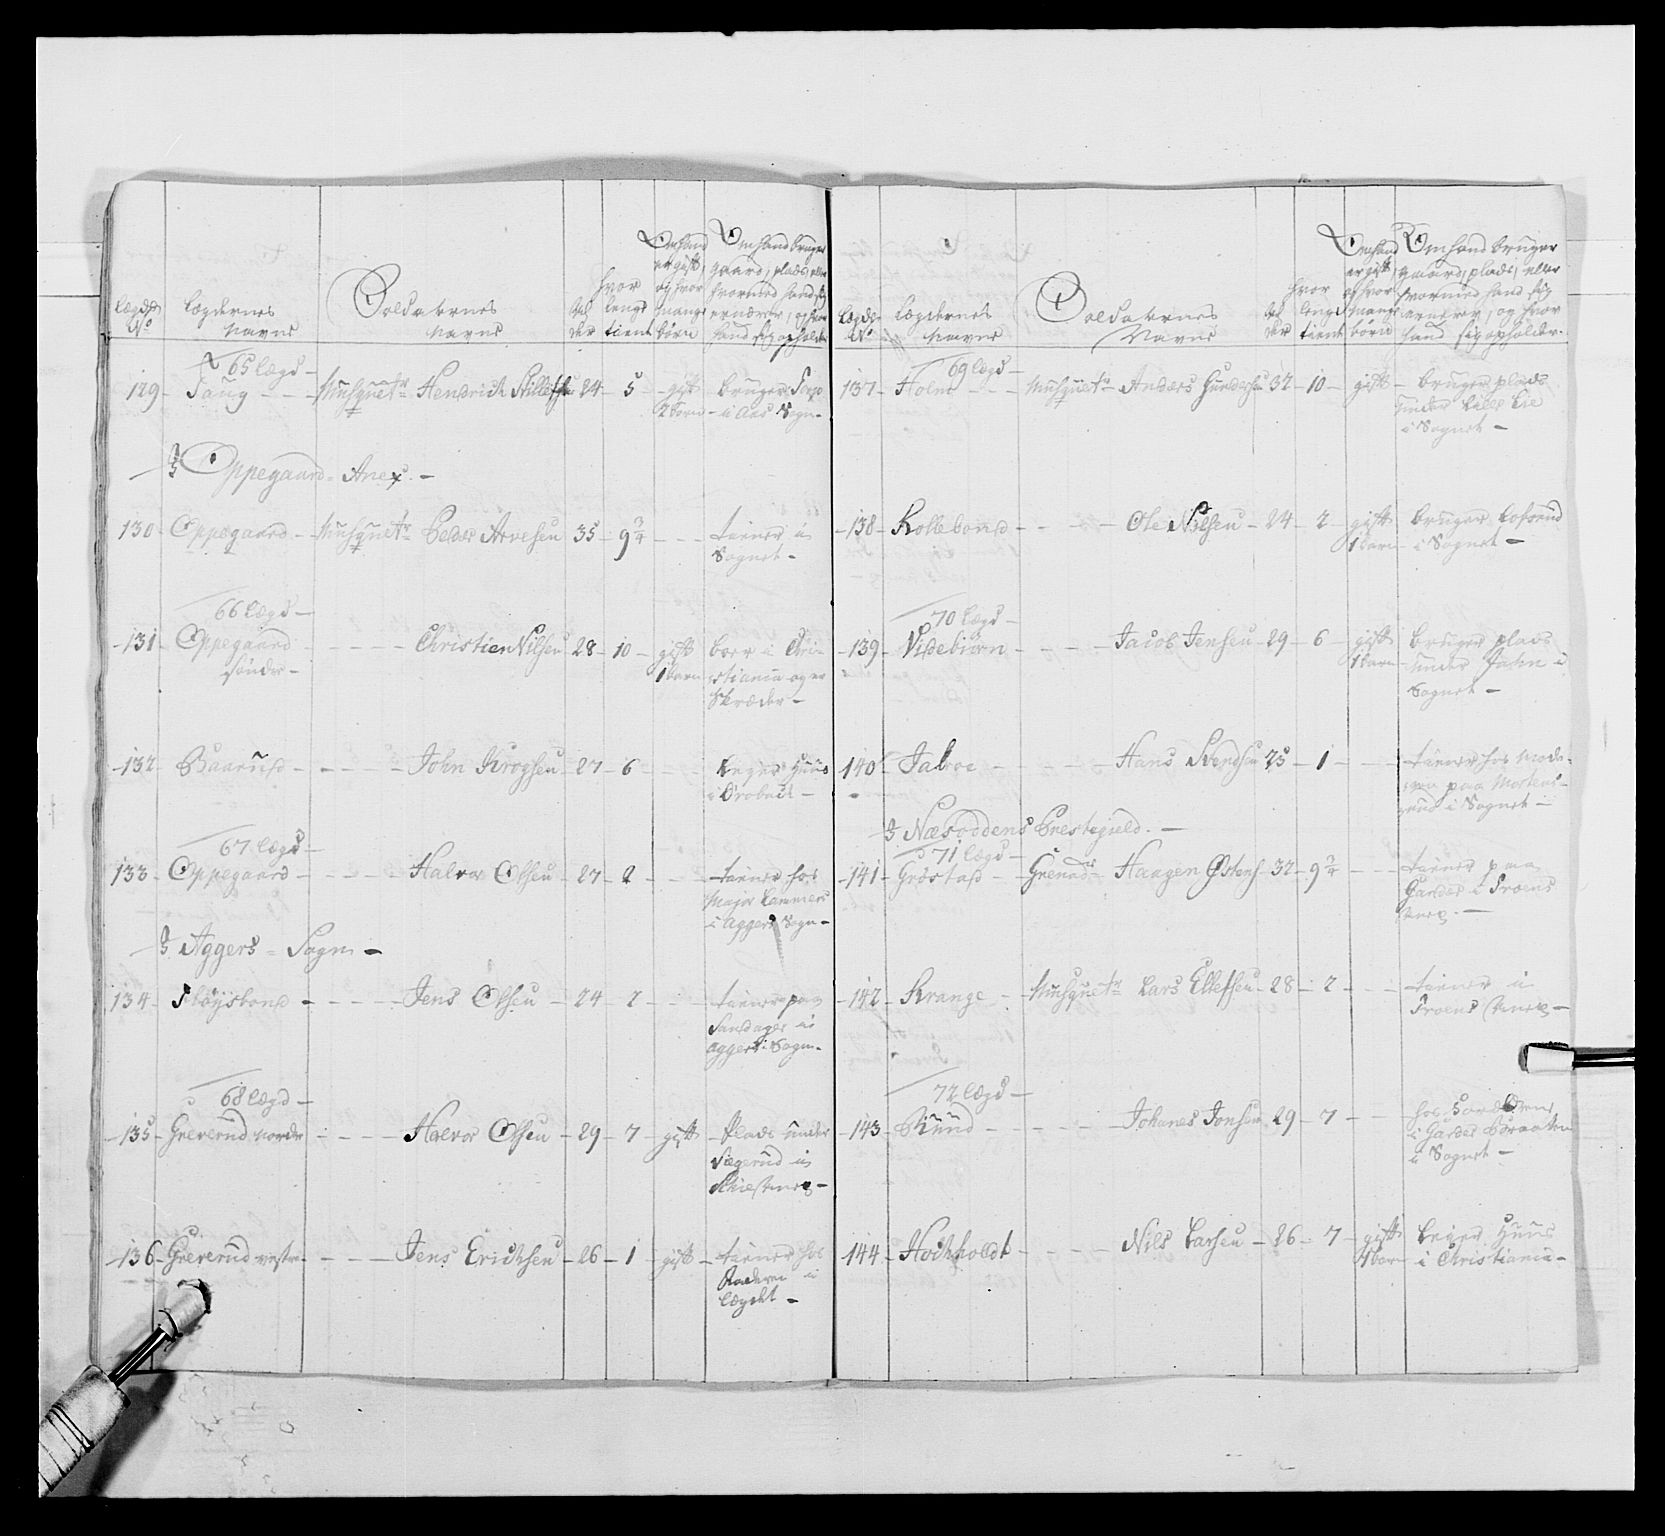 Lægds No
Lægdernes Navne
Soldaternes Navne
Al der
hvor lenge tient
Om hand er gift, og hvor mange børn
Om hand bruger gaard, plads, eller hvormed hand sig ernærer, og hvor hand sig opholder
65 Lægd
129 - Haug - - - Musquetr Hendrich - 24 - 5 - gift 2 børn - bruger
i Aas Sogn -
Oppegaard = Anex. -
130 - Oppegaard - Musquetr Peder Arvesen 35 - 9 3/4 - - - tiener i
Sognet -
66 Lægd -
131 - Oppegaard - - - - Christien Nilsen 28 - 10 - gift boer i Chri-
søndre - 1 barn stiania og er
Skræder -
132 - - - - - John Krogsen - 27 - 6 - - - Leyer Huus
i Drøback -
67 Lægd -
133 - Oppegaard - - - - Halvor Olsen - 27 - 2 - - - tiener hos
Major Lammers
i Aggers Sogn -
Aggers = Sogn -
134 - Fløysbond - - - - Jens Olsen - 24 - 2 - - - tiener paa
i
Aggers Sogn -
68 Lægd -
135 - Greverud nordre - - - Halvor Olsen - 29 - 7 - gift - Plads under
i
136 - Greverud vestre - - - Jens Erichsen - 26 - 1 - gift - tiener hos
i
Lægdet -
Lægds No
Lægdernes Navne
Soldaternes Navne
Al der
hvor lenge tient
Om hand er gift, og hvor mange børn
Om hand bruger gaard, plads, eller hvormed hand sig ernerer, og hvor hand sig opholder -
69 Lægd -
137 - Holm - - - Musquetr Anders Gundersen 32 - 10 - gift - bruger plads
under Lille Lie
i Sognet -
138 - Kollebond - - - - Ole Nilsen - 24 - 2 - gift bruger
1 barn - i Sognet -
70 Lægd -
139 - - - - - Jacob Jensen - 29 - 6 - gift bruger plads
1 barn under i
Sognet -
140 - - - - - Hans Svendsen 23 - 1 - - - tiener hos Mode-
ren paa Mortens-
rud i Sognet -
Næsoddens Prestegield. -
71 Lægd -
141 - - Grenadr - Haagen Østens 32 - 9 3/4 - - - tiener paa
Garder i Froens
Anex. -
142 - Krange - Musquetr Lars Ellefsen - 28 - 2 - - - tiener i
Froens Anex -
72 Lægd -
143 - - - - - Johanes Jonsen 29 - 7 - - - hos Forældrene
i Garder
i Sognet -
144 - - - - Nils Larsen - 26 - 7 - gift Leier Huus
1 barn i Christiania -